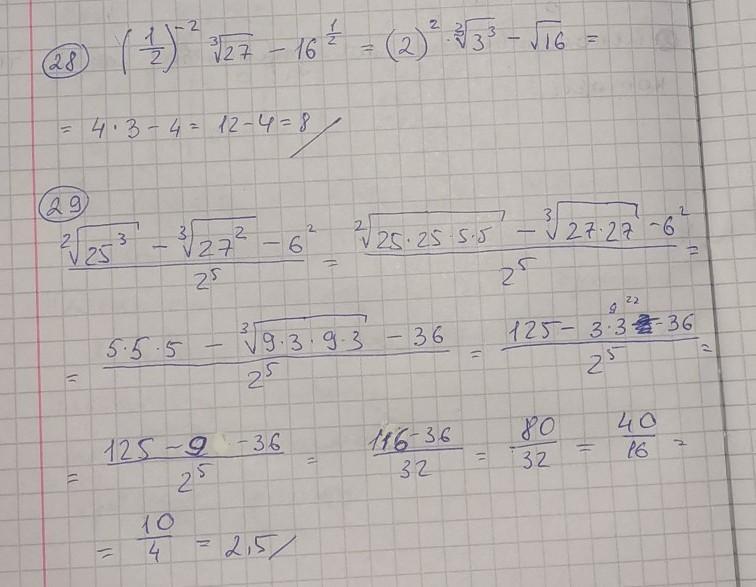 28 (1/2)^-2 ∛27 - 16^1/2 = (2)^2 · ∛3^3 - √16 =
= 4 · 3 - 4 = 12 - 4 = 8
29
(²√25^3 - ∛27^2 - 6^2)/2^5 = (²√25·25·5·5 - ∛27·27 - 6^2)/2^5 =
= (5·5·5 - ∛9·3·9·3 - 36)/2^5 = (125 - 3·3 - 36)/2^5 =
= (125 - 9 - 36)/2^5 = (116 - 36)/32 = 80/32 = 40/16 =
= 10/4 = 2,5